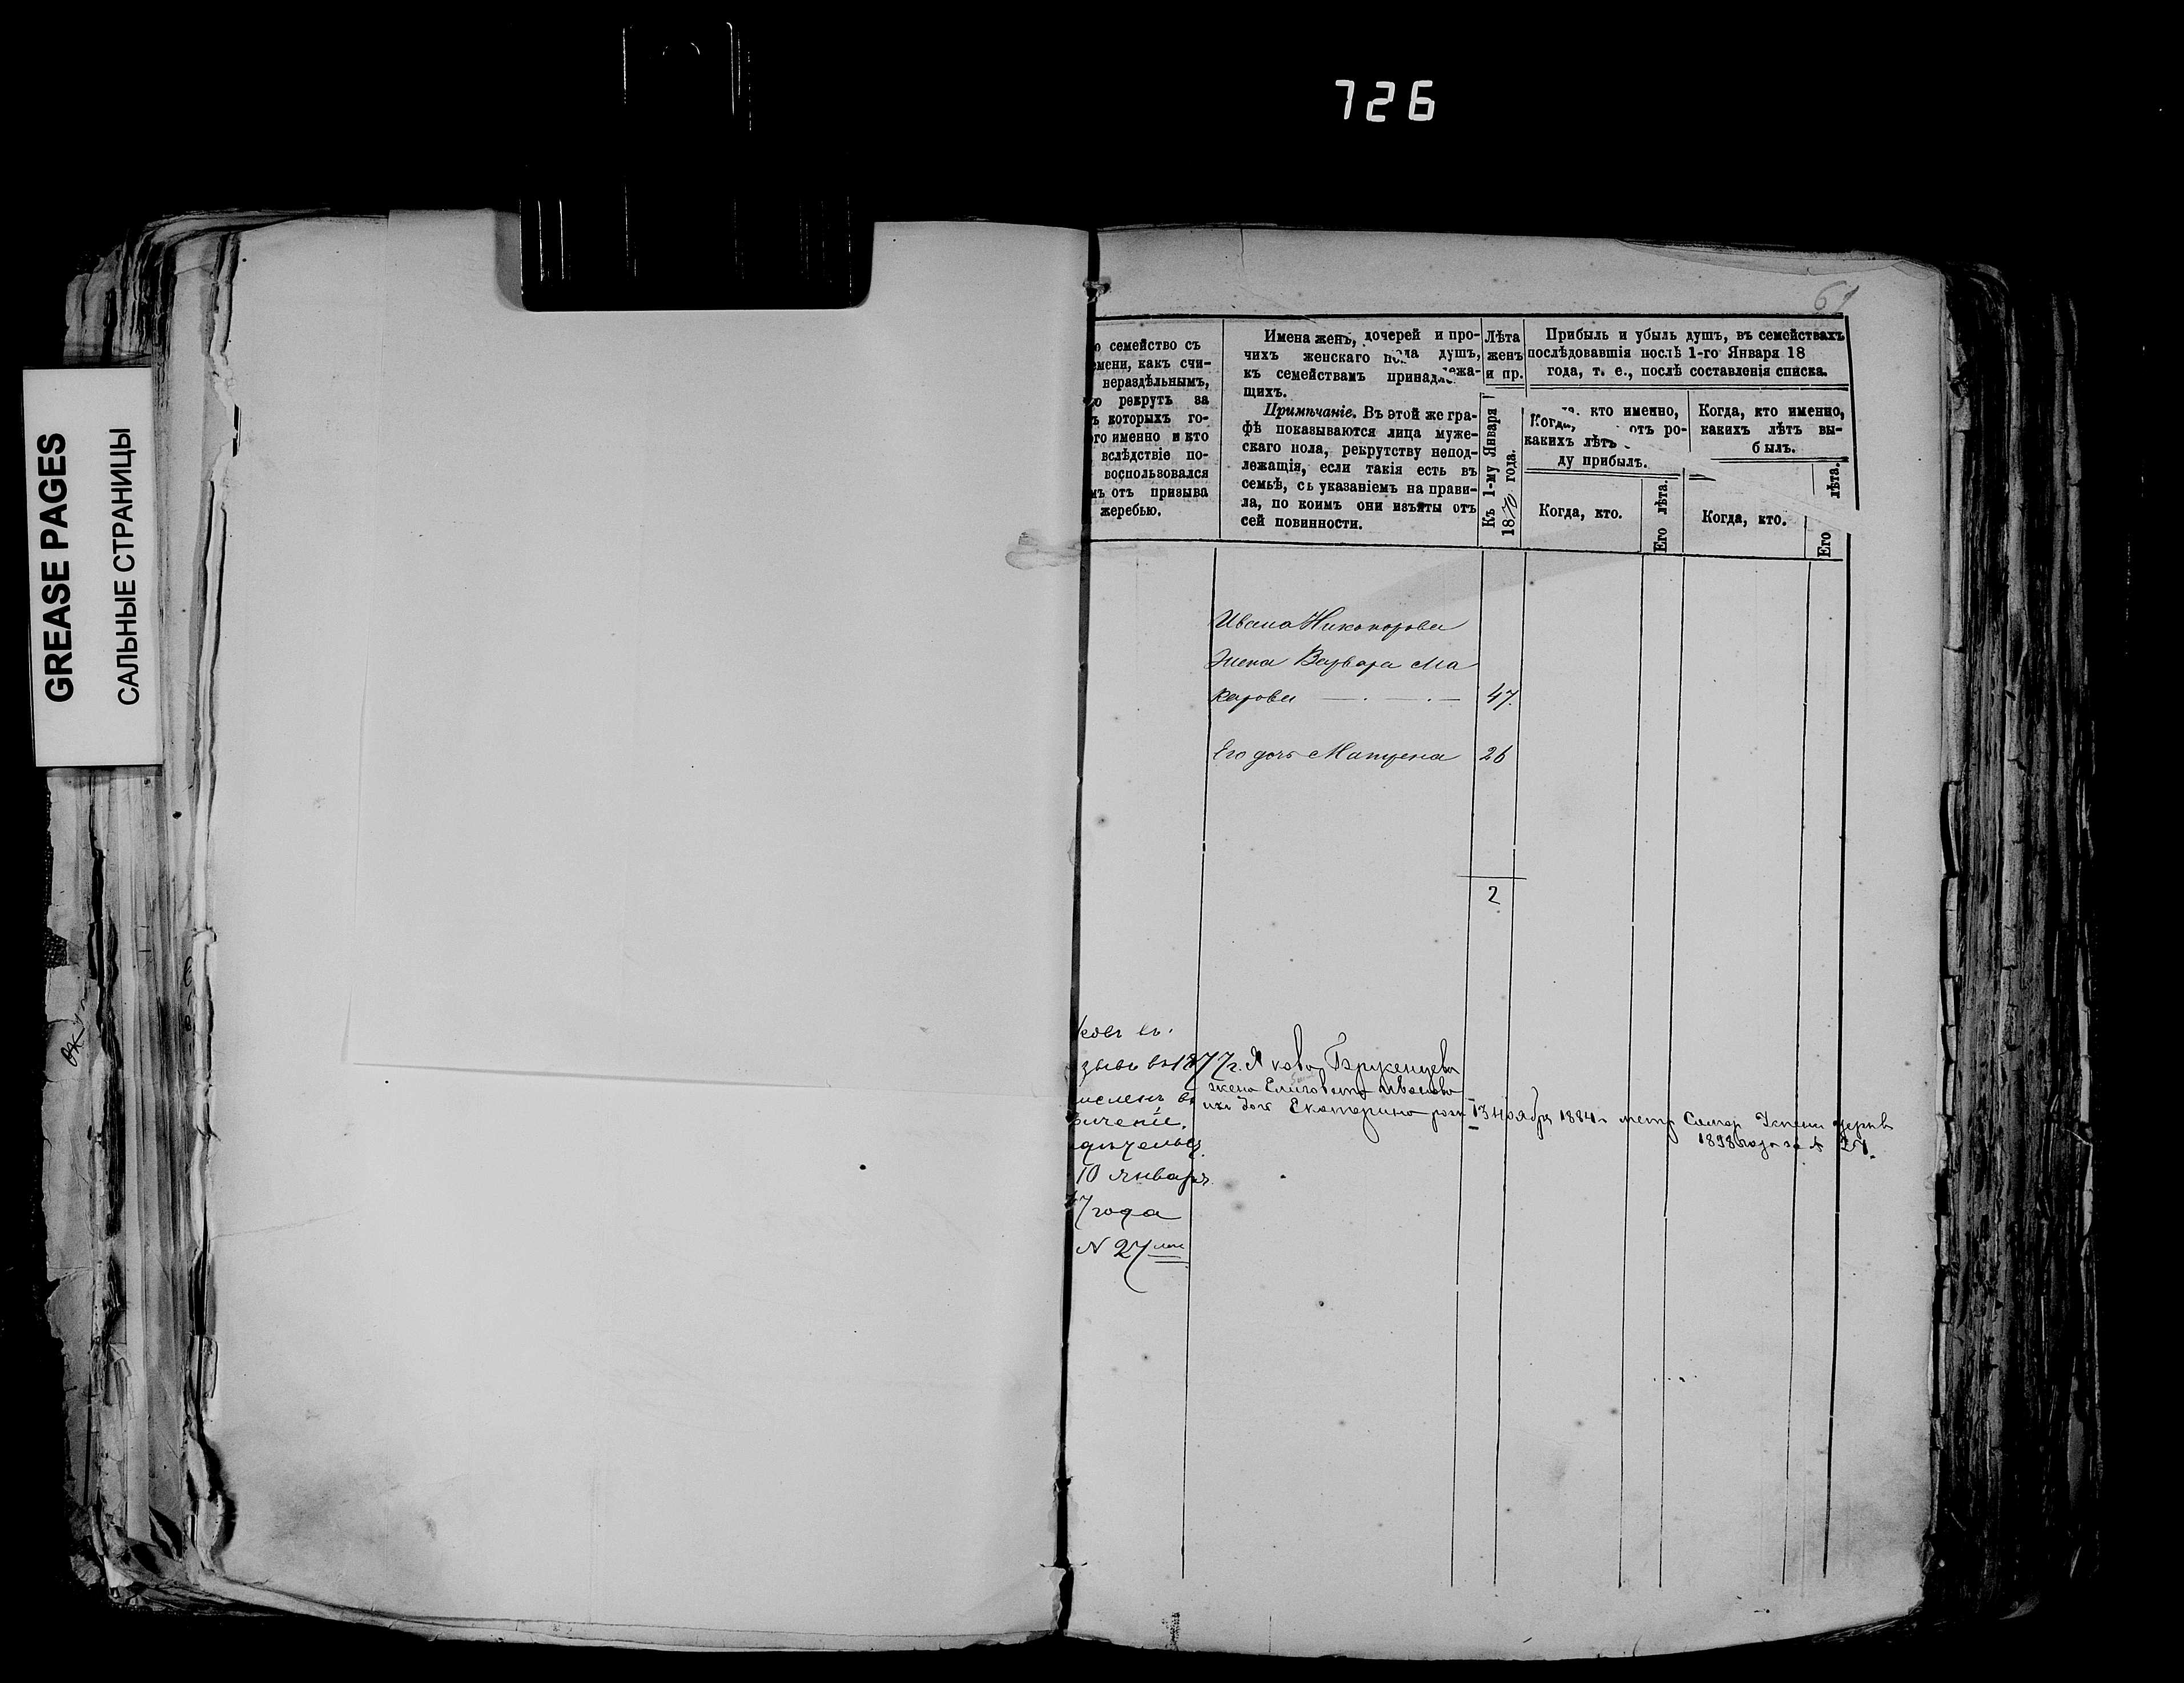 726
GREASE PAGES
САЛЬНЫЕ СТРАНИЦЫ
61
о семейство съ
емени, какъ счи-
нераздѣльнымъ,
ю рекрутъ за
ъ которыхъ го-
ого именно и кто
вслѣдствіе по-
воспользовался
мъ отъ призыва
жеребью.
Имена женъ, дочерей и про-
чихъ женскаго пола душъ,
къ семействамъ принадлежа-
щихъ.
Примѣчаніе. Въ этой же гра-
фѣ показываются лица муже-
скаго пола, рекрутству непод-
лежащія, если такія есть въ
семьѣ, съ указаніемъ на прави-
ла, по коимъ они изъяты отъ
сей повинности.
Лѣта
женъ
и пр.
Къ 1-му Января
1870 года.
Прибыль и убыль душъ, въ семействахъ
послѣдовавшія послѣ 1-го Января 18
года, т. е., послѣ составленія списка.
Когда, кто именно,
какихъ лѣтъ отъ ро-
ду прибылъ.
Когда, кто именно,
какихъ лѣтъ вы-
былъ.
Когда, кто.
Его лѣта.
Когда, кто.
Его лѣта.
Ивана Никонорова
жена Варвара Ма
карова 47.
Его дочь Матрена 26
2
ковъ въ
зывъ въ 1877 г. Якова
жена Елизовета Иванова
ихъ дочь Екатерина рож 13 ноября 1884 г метр Самар Успен церкв
1898 года за № 27.
10 января
7 года
N 27